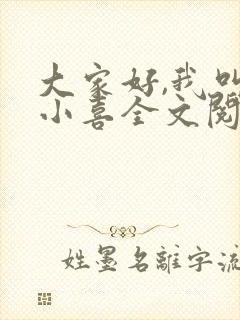 大家好,我叫
小喜全文閱
姓墨名離字流